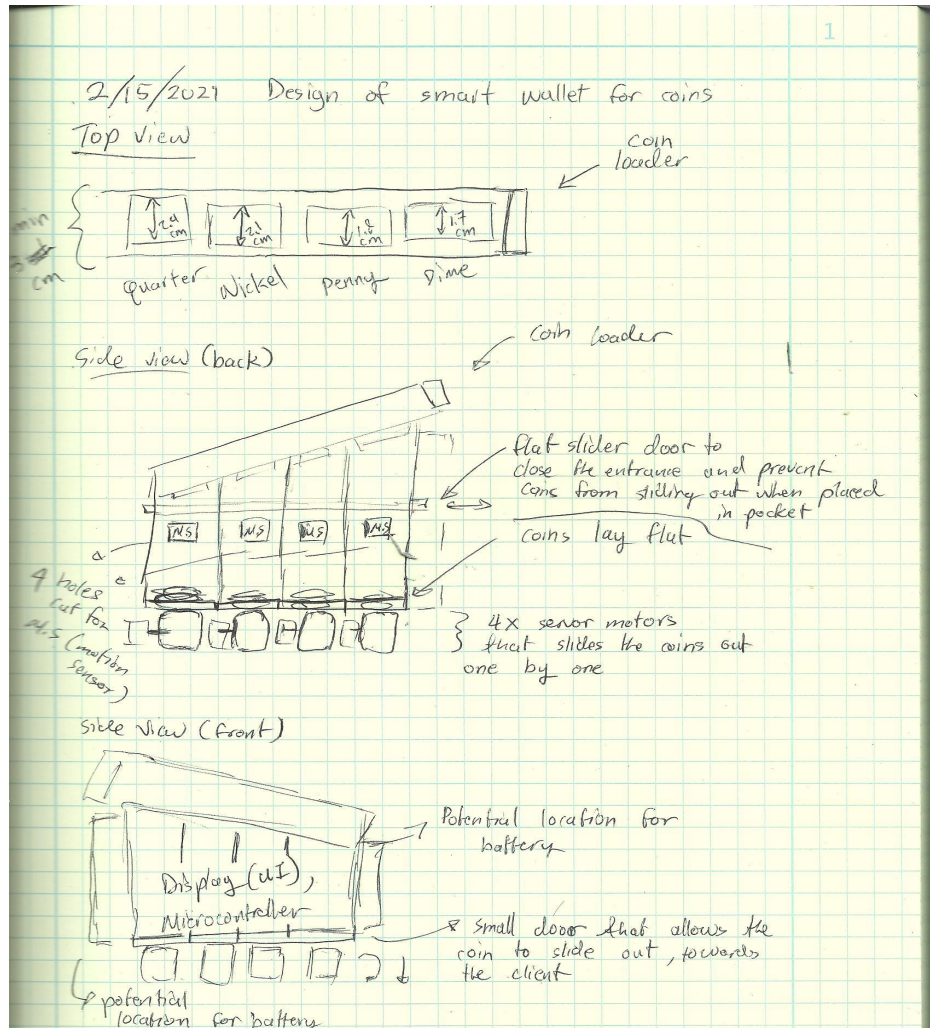 1
2/15/2021 Design of smart wallet for coins
Top View
coin
loader
min
cm
2.4
cm
2.1
cm
1.8
cm
1.7
cm
quarter Nickel penny Dime
Side view (back)
coin loader
flat slider door to
close the entrance and prevent
coins from sliding out when placed
in pocket
M.S M.S M.S M.S
coins lay flat
4 holes
cut for
M.S (motion
sensor)
4x servor motors
that slides the coins out
one by one
Side view (front)
Potential location for
battery
Display (UI),
Microcontroller
small door that allows the
coin to slide out, towards
the client
potential
location for battery